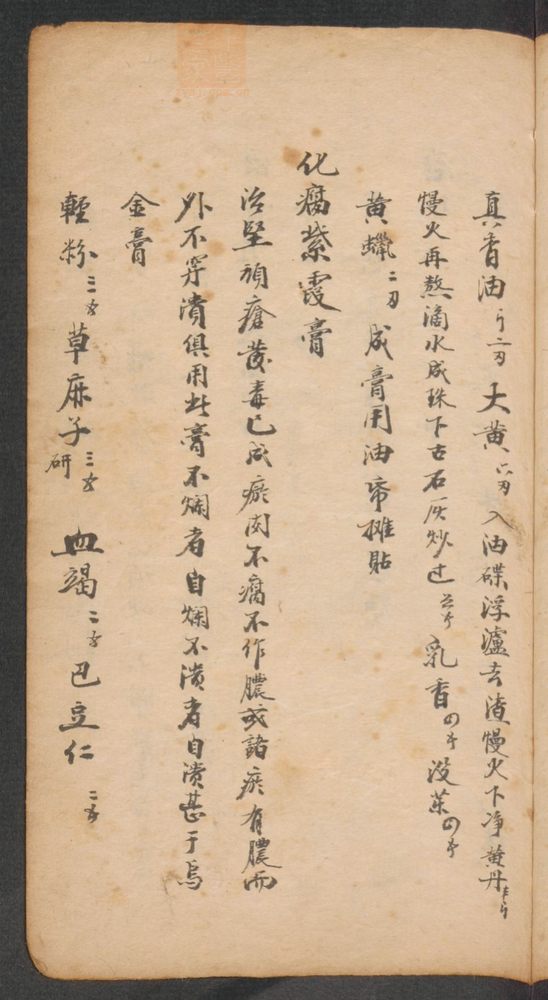 真香油 大黄 入油碟浮瀘去渣慢火下净黄丹
慢火再熬滴水成珠下古石灰炒过 乳香 没药
黄蠟二刃 成膏用油帋摊貼
化腐紫霞膏
治堅頑瘡發毒已成瘀肉不腐不作膿或諸疾有膿而
外不穿潰俱用此膏不爛者自爛不潰者自潰甚于烏
金膏
輕粉三 草麻子三研 血竭二 巴豆仁二